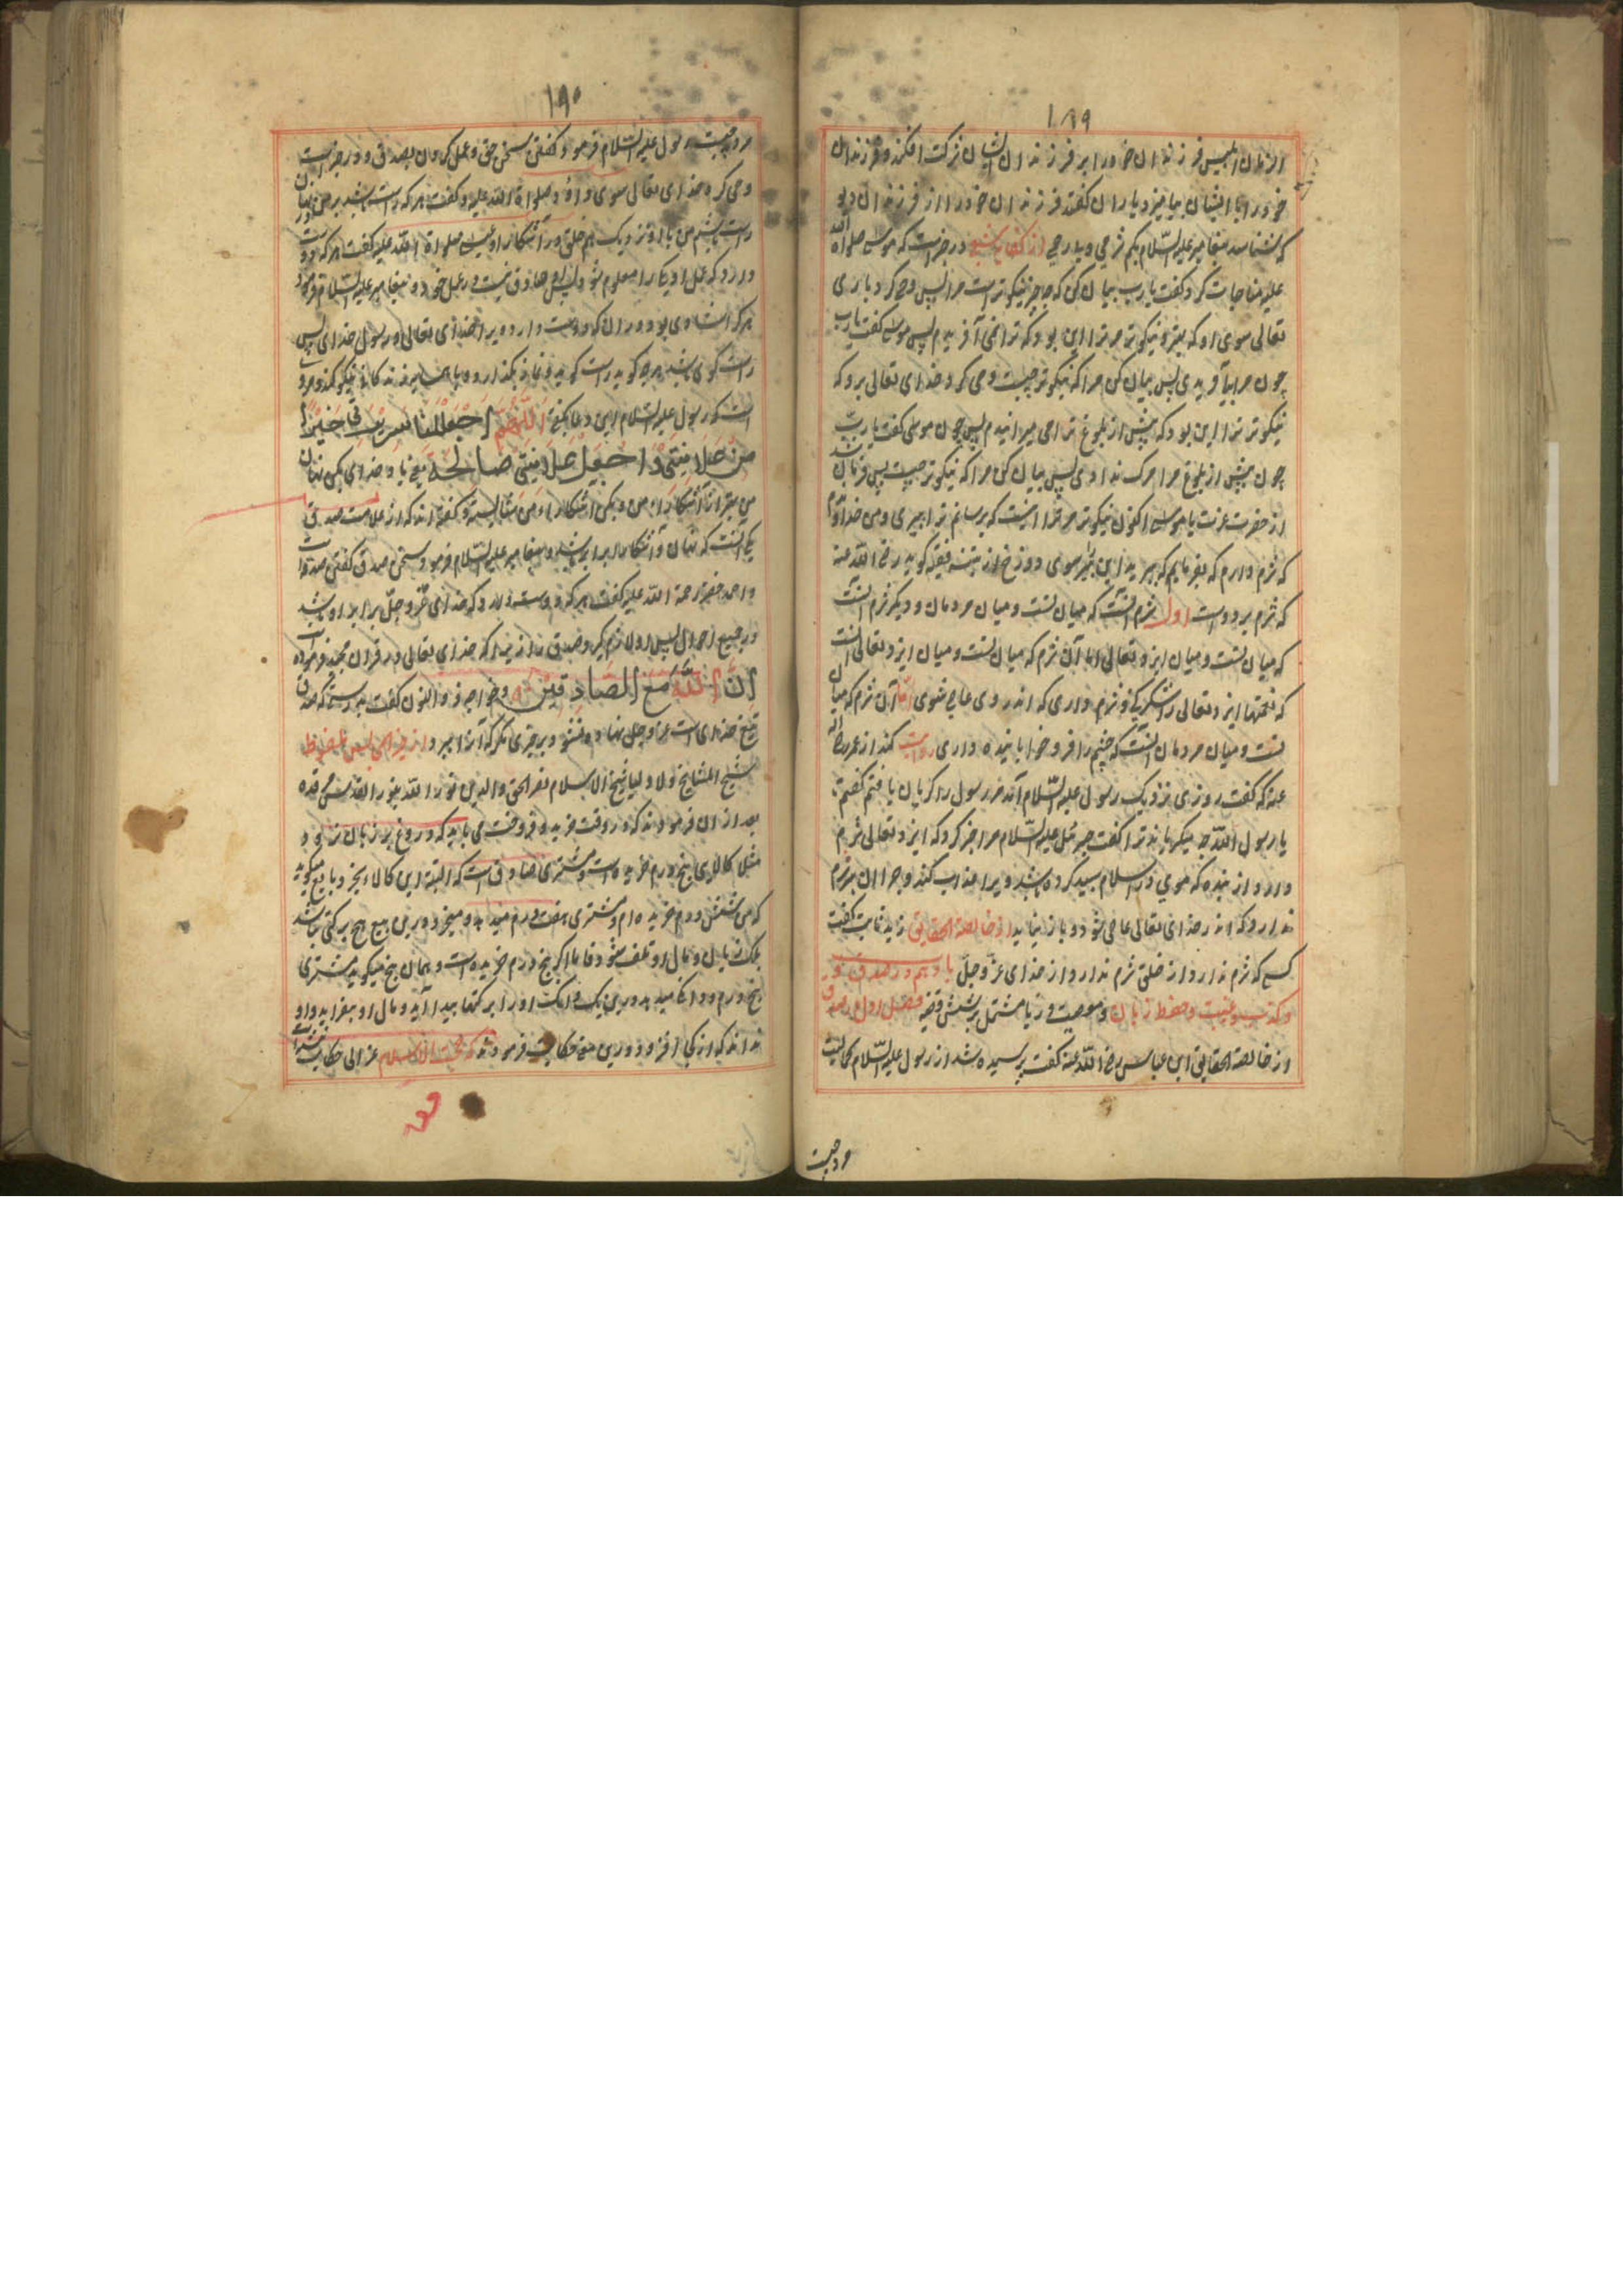 ۱۸۹
از زمان ابلیس فرزندان خود را بر فرزندان ایشان شرکت افکند و فرزندان
خود را با ایشان بیامیزد یاران گفتند فرزندان خود را از فرزندان دیو
که شناسد پیغامبر علیه السّلام بکم شرمی و بیرحمی از کفایه شعبی در خبرست که موسی صلواة الله
علیه مناجات کرد و گفت یارب بیان کن که چه چیز نیکوترست مرا پس وحی کرد باری
تعالی سوی او که بهتر و نیکوتر مر ترا این بود که ترا می آفریدم پس موسی گفت یارب
چون مرا بیافریدی پس بیان کن مرا که نیکوتر چیست وحی کرد خدای تعالی برو که
نیکوتر ترا این بود که پیش از بلوغ ترا می میرانیدم پس چون موسی گفت یارب
چون پیش از بلوغ مرا مرگ ندادی پس بیان کن مرا که نیکوتر چیست پس فرمان شد
از حضرت عزت یا موسی اکنون نیکوتر مر ترا اینست که برسانم ترا بپیری و من خداوندم
که شرم دارم که بفرمایم که ببرید این پیر سوی دوزخ از تنبیه فقیه گوید رضی الله عنه
که شرم بر دو است اول شرم آنست که میان تست و میان مردمان و دیگر شرم آنست
که میان تست و میان ایزد تعالی اما آن شرم که میان تست و میان ایزد تعالی آنست
که نعمتها ایزد تعالی را شکر کنی و شرم داری که اندر وی عاصی شوی اما آن شرم که میان
تست و میان مردمان آنست که چشم را فرو خوابانیده داری روایت کند از عمر رضی الله
عنه که گفت روزی نزدیک رسول علیه السّلام آمدم رسول را گریان یافتم گفتم
یا رسول الله چه میگریاند ترا گفت جبرئیل علیه السّلام مرا خبر کرد که ایزد تعالی شرم
دارد از بنده که موی در اسلام سپید کرده باشد ویرا عذاب کند و چرا آن پیر شرم
ندارد که اندر خدای تعالی عاصی شود و باز نیاید از خالصة الحقایق زید ثابت گفت
کسی که شرم ندارد از خلق شرم ندارد از خدای عزّ و جلّ باب دهم در صدق زور
و کذب و غیبت و حفظ زبان و معصیت و ریا مشتمل بر شش فصل فصل اول در صدق
از خالصة الحقایق ابن عباس رضی الله عنه گفت پرسیده شد از رسول علیه السّلام کمالیت
مرد چیست
۱۹۰
مرد چیست رسول علیه السّلام فرمود گفتن سخن حق و عمل کردن بصدق و در خبرست
وحی کرد خدای تعالی سوی داوود صلواة الله علیه و گفت هر که راست باشد بر من نهان
راست باشم من با او نزدیک هم خلق در آشکارا و عیسی صلواة الله علیه گفت هر که دوست
دارد که عمل او یکی را معلوم شود پس او صادق نیست در عمل خود و پیغامبر علیه السّلام فرمود
هر که شادی بود در آن که دوست دارد ویرا خدای تعالی و رسول خدای پس
راست گوی باشد هر چه گوید راست گوید و نماز بگذارد و با همسایه زندگانی نیکو کند و مروی
است که رسول علیه السّلام این دعا گفتی اَللّٰهُمَّ اجْعَلْ لَنَا سَرِیْرَتِی خَیْرًا
مِنْ عَلَانِیَتِیْ وَاجْعَلْ عَلَانِیَتِیْ صَالِحَةً یعنی بار خدای بکن نهان
من بهتر از آشکارای من و بکن آشکاراء من شایسته و گفته‌اند که از علامت صدق
یکی آنست که نهان و آشکارا برابر باشد و پیغامبر علیه السّلام فرمود سخن صدق گفتن صدقه است
و احمد خضر رحمة الله علیه گفت هر که دوست دارد که خدای عزّ و جلّ برابر او باشد
در جمیع احوال پس او لازم گیرد صدق را زیرا که خدای تعالی در قرآن مجید فرموده است
اِنَّ اللّٰهَ مَعَ الصَّادِقِیْنَ و خواجه ذو النون گفت بدرستی که صدق
تیغ خدای است عز و جل نهاده نشود بر چیزی مگر که آنرا ببرد از خیر المجالس ملفوظ
شیخ المشایخ والاولیا شیخ الاسلام نصیر الحق والدین نوّر الله بنور القدس مرقده
بعد از آن فرمودند که در وقت خرید و فروخت می باید که دروغ بر زبان نراند
مثلا کالای پنج درم خریده است و مشتری صادق است که البته این کالا بخرد بایع میگوید
که من بشش درم خریده‌ام و مشتری هفت درم میدهد و میخرد درین بیع هیچ برکتی نباشد
بلکه زیان و مال او تلف شود فاما اگر پنج درم خریده است و همان پنج میگوید مشتری
پنج درم و دانگ میدهد درین یک دانگ او را برکتها پیدا آید و مال او بیفزاید و او
نداند که از کجا افزود و درین معنی حکایت فرمودند که حجت الاسلام غزالی حکایت